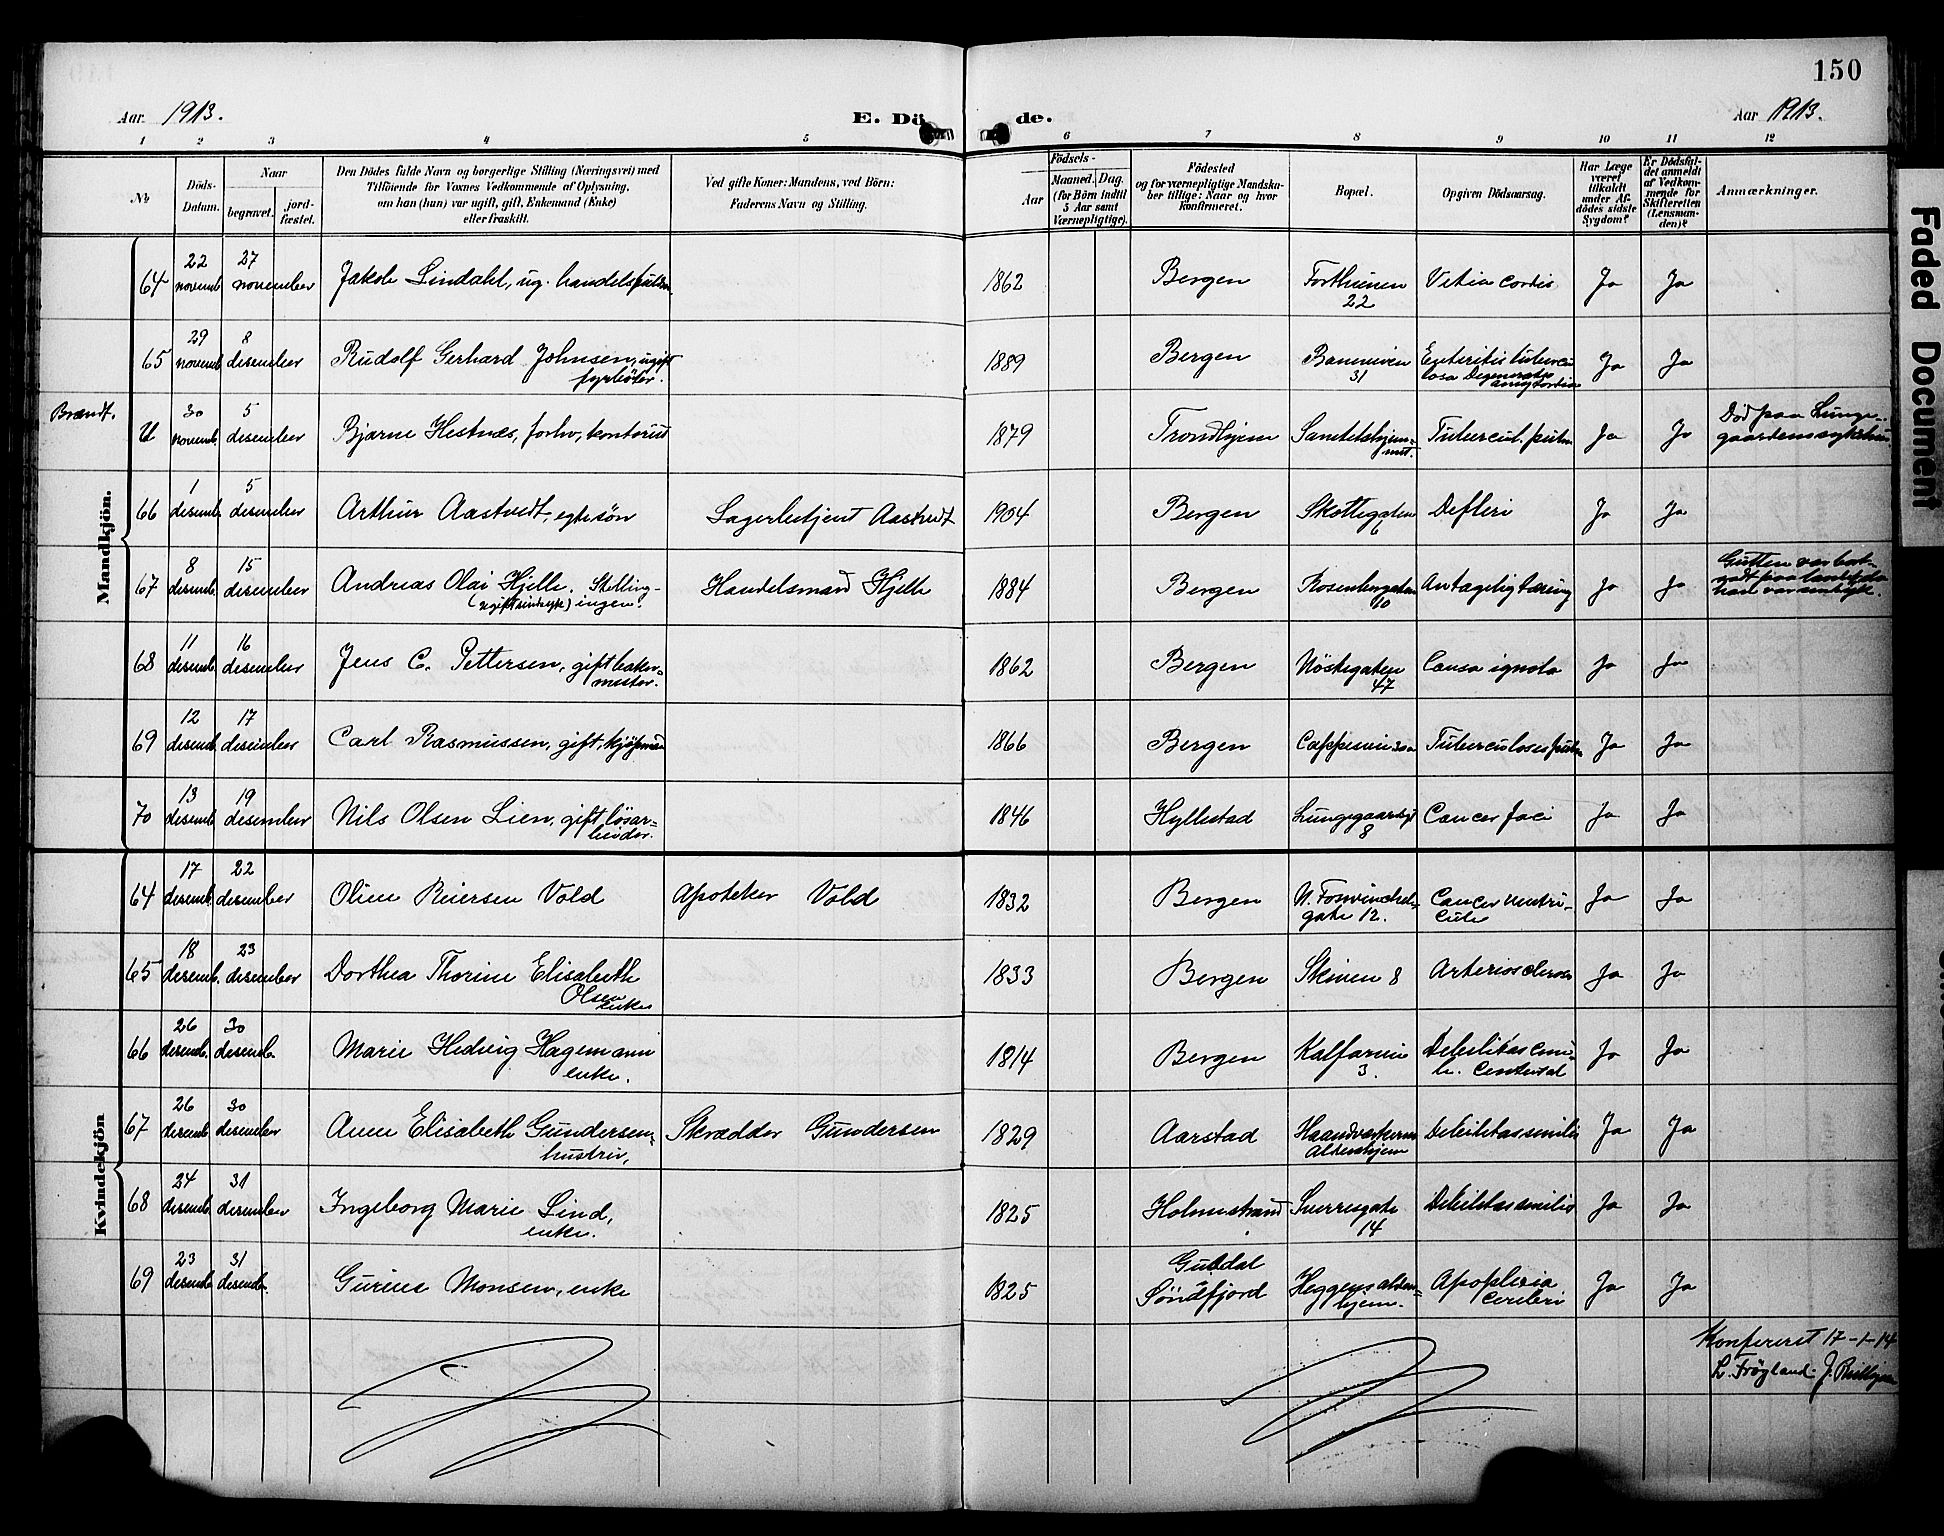 150
Aar 1913.
E. Dö de.
Aar 1913.
1 2 3 4 5 6 7 8 9 10 11 12
No
Döds-
Datum.
Naar
begravet.
jord-
fæstet.
Den Dödes fulde Navn og borgerlige Stilling (Næringsvei) med
Tilföiende for Voxnes Vedkommende af Oplysning,
om han (hun) var ugift, gift, Enkemand (Enke)
eller fraskilt.
Ved gifte Koner: Mandens, ved Börn:
Faderens Navn og Stilling.
Födsels-
Aar
Maaned. Dag.
(for Börn indtil
5 Aar samt
Værnepligtige).
Födested
og for værnepligtige Mandska-
ber tillige: Naar og hvor
konfirmeret.
Bopæl.
Opgiven Dödsaarsag.
Har Læge
været
tilkaldt
under Af-
dödes sidste
Sygdom?
Er Dödsfal-
det anmeldt
af Vedkom-
mende for
Skifteretten
(Lensman-
den)?
Anmærkninger.
Mandkjön.
64 22 novemb. 27 november Jakob Lindahl, ug. handels 1862 Bergen 22 Vitia cordis Ja Ja
65 29 novemb. 8 desember Rudolf Gerhard Johnsen, ugift
fyrböter. 1889 Bergen 31 Enteritis tubercu
losa Ja Ja
Brandt. U 30 novemb. 5 desember Bjarne Hestnæs, forhv. kontorist 1879 Trondhjem Sanitetshjem-
met. Tubercul. pulm. Ja Ja Död paa Lunge-
gaardens sykehus
66 1 desemb. 5 desember Arthur Aastvedt, egte sön Lagerbetjent Aastvedt 1904 Bergen Skottegaten
6 Defteri Ja Ja
67 8 desemb. 15 desember Andreas Olai Hjelle. Stilling
ingen. Handelsmand Hjelle 1884 Bergen Rosenbergaten
10 Antagelig tæring Ja Ja Gutten var
han var
68 11 desemb. 16 desember Jens C. Pettersen, gift baker-
mester. 1862 Bergen Nöstegaten
47 Causa ignota Ja Ja
69 12 desemb. 17 desember Carl Rasmussen, gift, kjöpmand 1866 Bergen Cappesmie 30a Tuberculosis pulm. Ja Ja
70 13 desemb. 19 desember Nils Olsen Lien, gift lösar-
beider. 1846 Hyllestad
8 Cancer faci Ja Ja
Kvindekjön
64 17 desemb. 22 desember Oline Reiersen Vold Apoteker Vold 1832 Bergen
gate 12. Cancer ventri-
culi Ja Ja
65 18 desemb. 23 desember Dorthea Thorine Elisabeth
Olsen enke 1833 Bergen Skiven 8 Arteriosclerosis Ja Ja
66 26 desemb. 30 desemb. Marie Hedvig Hagemann
enke. 1814 Bergen Kalfarvei
3. Debilitas Ja Ja
67 26 desemb. 30 desember Anne Elisabeth Gundersen,
hustru, Skrædder Gundersen 1829 Aarstad Haandverkernes
Aldershjem Debilitas senilis Ja Ja
68 24 desemb. 31 desember Ingeborg Marie Lind,
enke. 1825 Holmestrand Sverresgate
14 Debilitas senilis Ja Ja
69 23 desemb. 31 desemb. Gurine Monsen, enke 1825 Guldal
Söndfjord Heggens alders-
hjem. Apoplexia
cerebri Ja Ja
Konfereret 17-1-14
L. Tröyland. J.
Faded Document